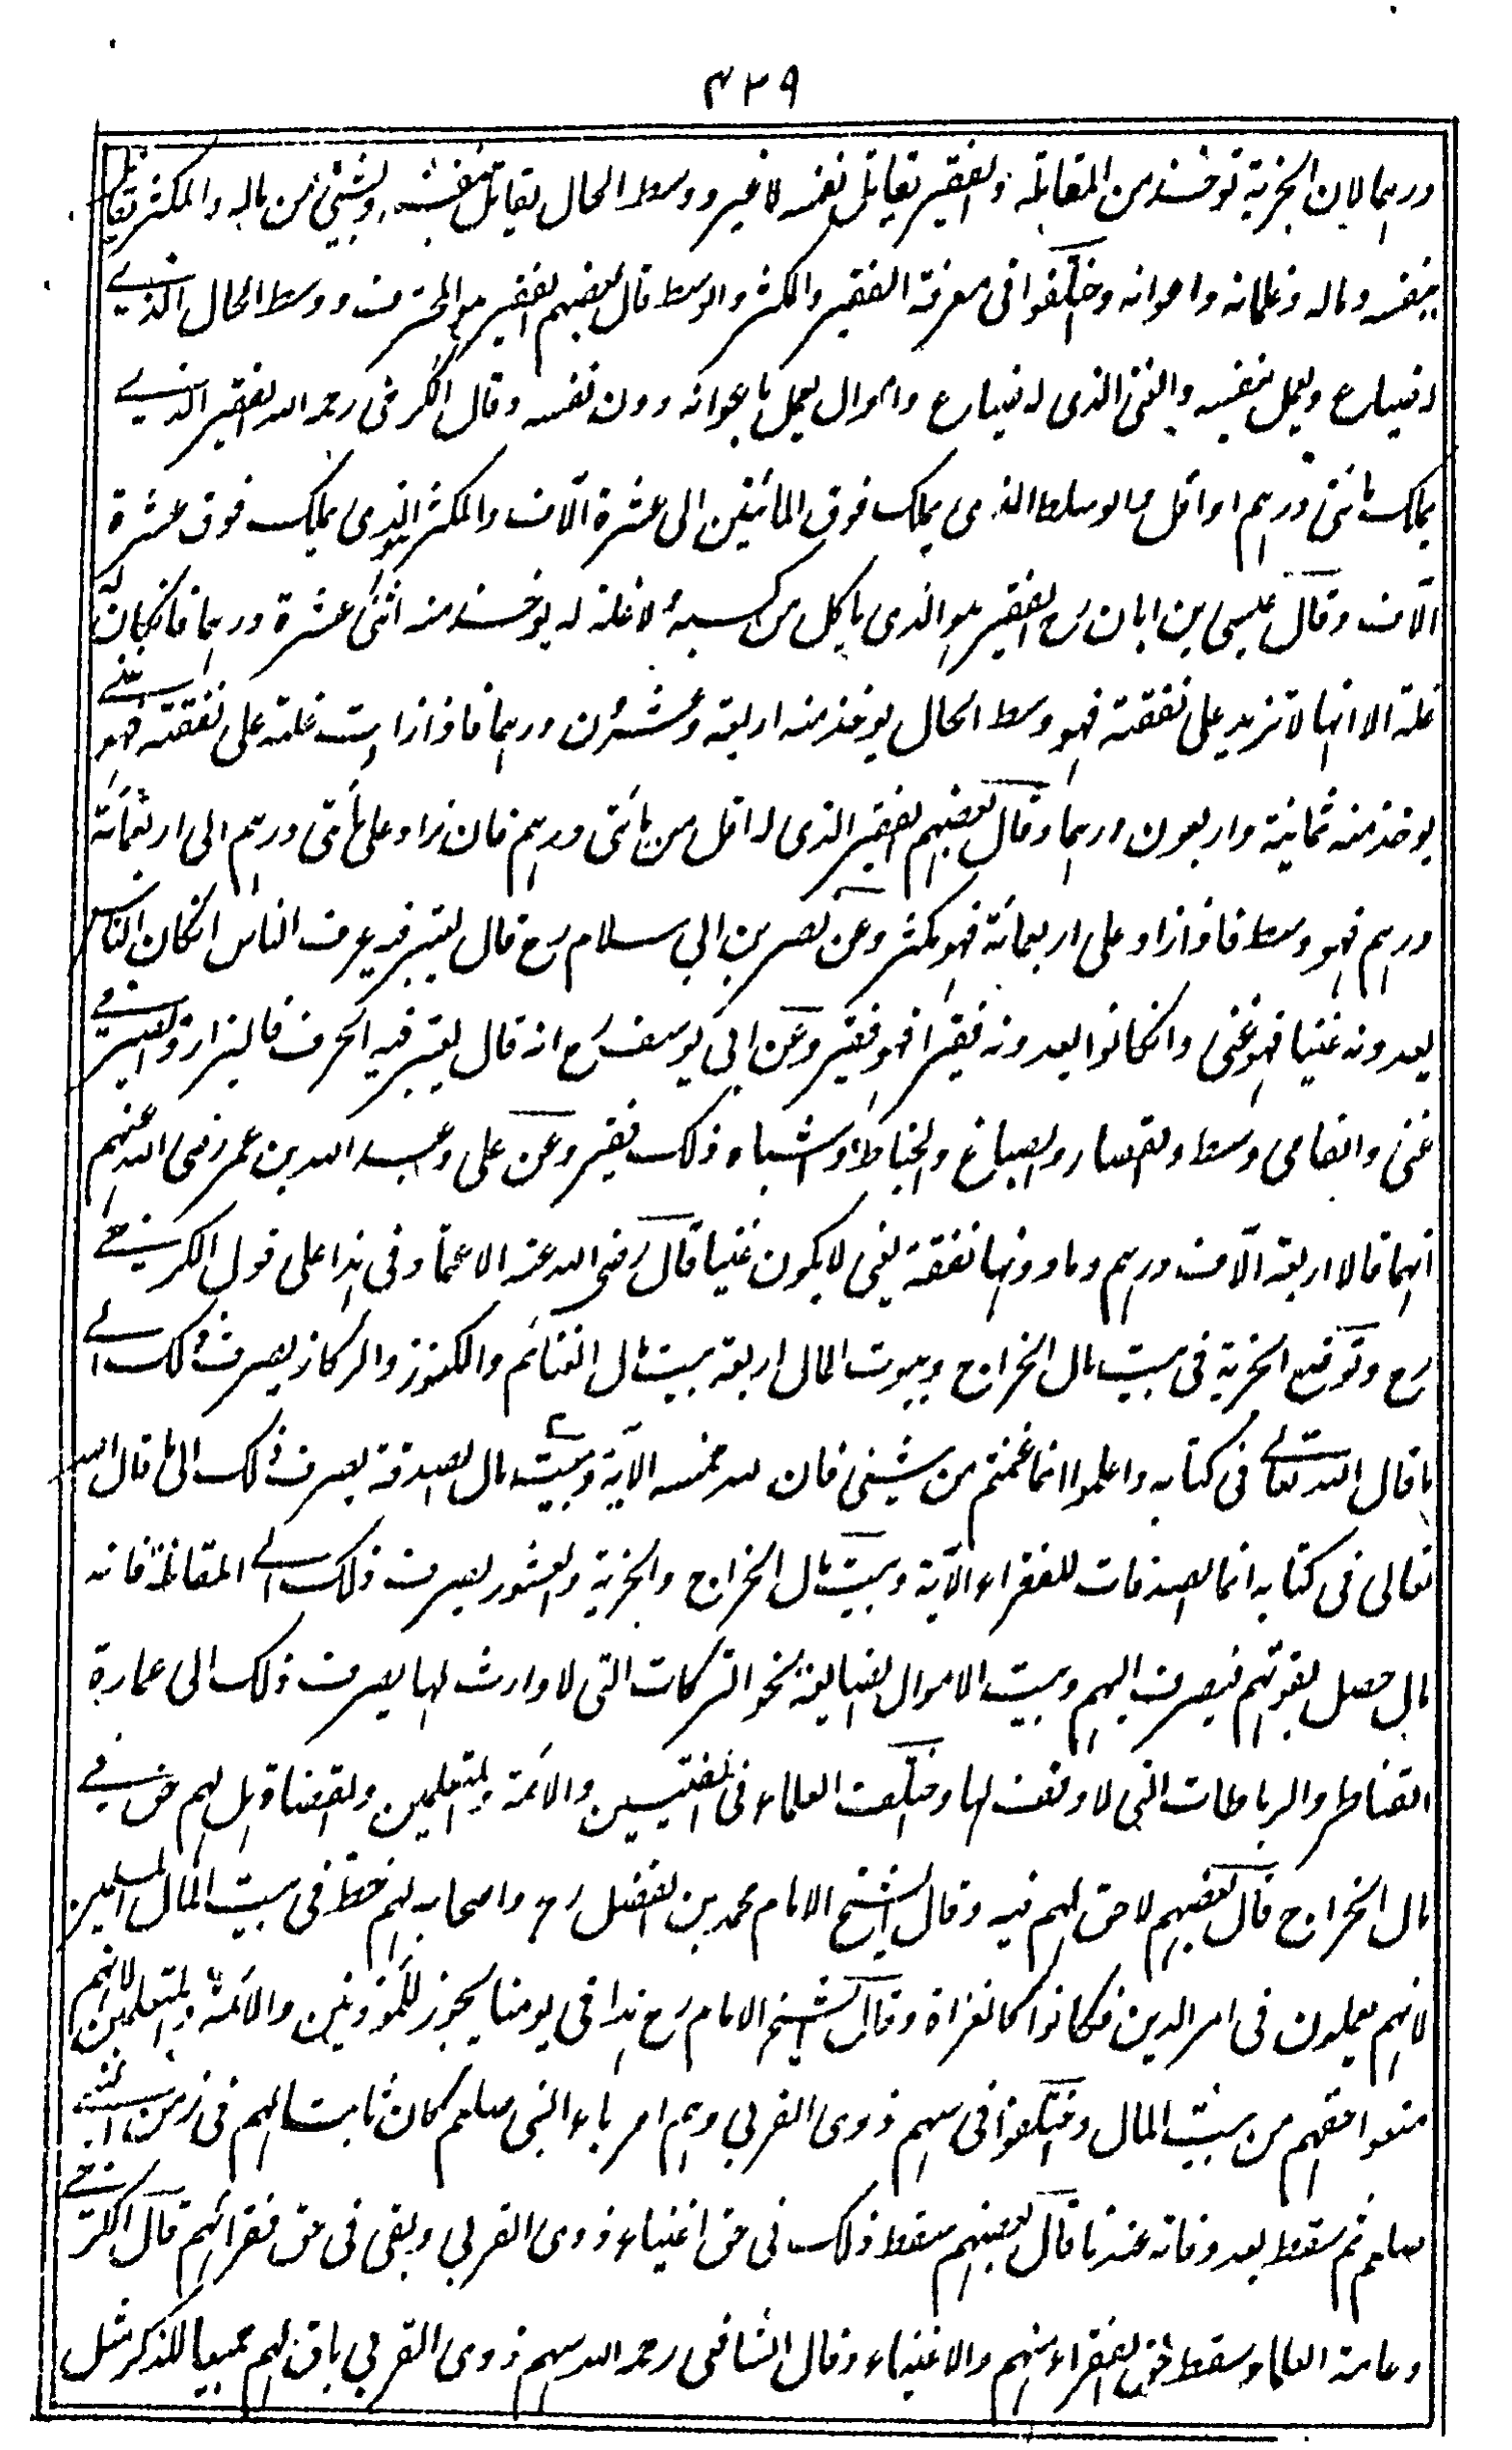 ٤٢٩
درهما لان الجزية توخذ من المقابلة والفقير يقاتل بنفسه لا غير ووسط الحال يقاتل بنفسه وبشئ من ماله والمكثر يقاتل
بنفسه وماله وغلمانه واعوانه واختلفوا فى معرفة الفقير والمكثر والوسط قال بعضهم الفقير هو المحترف ووسط الحال الذى
له ضياع ويعمل بنفسه والغنى الذى له ضياع واموال يعمل باعوانه دون نفسه وقال الكرخى رحمه الله الفقير الذى
يملك مائتى درهم او اقل والوسط الذى يملك فوق المائتين الى عشرة آلاف والمكثر الذى يملك فوق عشرة
آلاف وقال عيسى بن ابان رح الفقير هو الذى ياكل من كسبه ولا غلة له يوخذ منه اثنى عشرة درهما فانكان له
غلة الا انها لا تزيد على نفقته فهو وسط الحال يوخذ منه اربعة وعشرون درهما فاذا زادت غلته على نفقته فهو غنى
يوخذ منه ثمانية واربعون درهما وقال بعضهم الفقير الذى له اقل من مائتى درهم فان زاد على مائتى درهم الى اربعمائة
درهم فهو وسط فاذا زاد على اربعمائة فهو مكثر وعن نصر بن ابى سلام رح قال يعتبر فيه عرف الناس انكان الناس
يعدونه غنيا فهو غنى وانكانوا يعدونه فقيرا فهو فقير وعن ابى يوسف رح انه قال يعتبر فيه الحرف فالبزاز والصيرفى
غنى والفامى وسط والقصار والصباغ والخياط واشباه ذلك فقير وعن على وعبد الله بن عمر رضى الله عنهم
انهما قالا اربعة آلاف درهم وما دونها نفقة يعنى لا يكون غنيا قال رضى الله عنه الاعتماد فى هذا على قول الكرخى
رح وتوضع الجزية فى بيت مال الخراج وبيوت المال اربعة بيت مال الغنائم والكنوز والركاز يصرف ذلك الى
ما قال الله تعالى فى كتابه واعلموا انما غنمتم من شيئ فان لله خمسه الآية وبيت مال الصدقة يصرف ذلك الى ما قال الله
تعالى فى كتابه انما الصدقات للفقراء الآية وبيت مال الخراج والجزية والعشور يصرف ذلك الى المقاتلة فانه
مال حصل بقوتهم فيصرف اليهم وبيت الاموال الضايعة نحو التركات التى لا وارث لها يصرف ذلك الى عمارة
القناطر والرباطات التى لا وقف لها واختلفت العلماء فى المفتيين والائمة والمتعلمين والقضاة هل لهم حق فى
مال الخراج قال بعضهم لا حق لهم فيه وقال الشيخ الامام محمد بن الفضل رح واصحابه لهم حظ فى بيت المال المسلمين
لانهم يعملون فى امر الدين فكانوا كالغزاة وقال الشيخ الامام رح هذا فى يومنا يجوز للمؤذنين والائمة والمتعلمين لانهم
منعوا حقهم من بيت المال واختلفوا فى سهم ذوى القربى وهم اقرباء النبى صلعم كان ثابتا لهم فى زمن النبى
صلعم ثم سقط بعد وفاته عندنا قال بعضهم سقط ذلك فى حق اغنياء ذوى القربى وبقى فى حق فقرائهم قال الكرخى
وعامة العلماء سقط حق الفقراء منهم والاغنياء وقال الشافعى رحمه الله سهم ذوى القربى باق لهم جميعا للذكر مثل